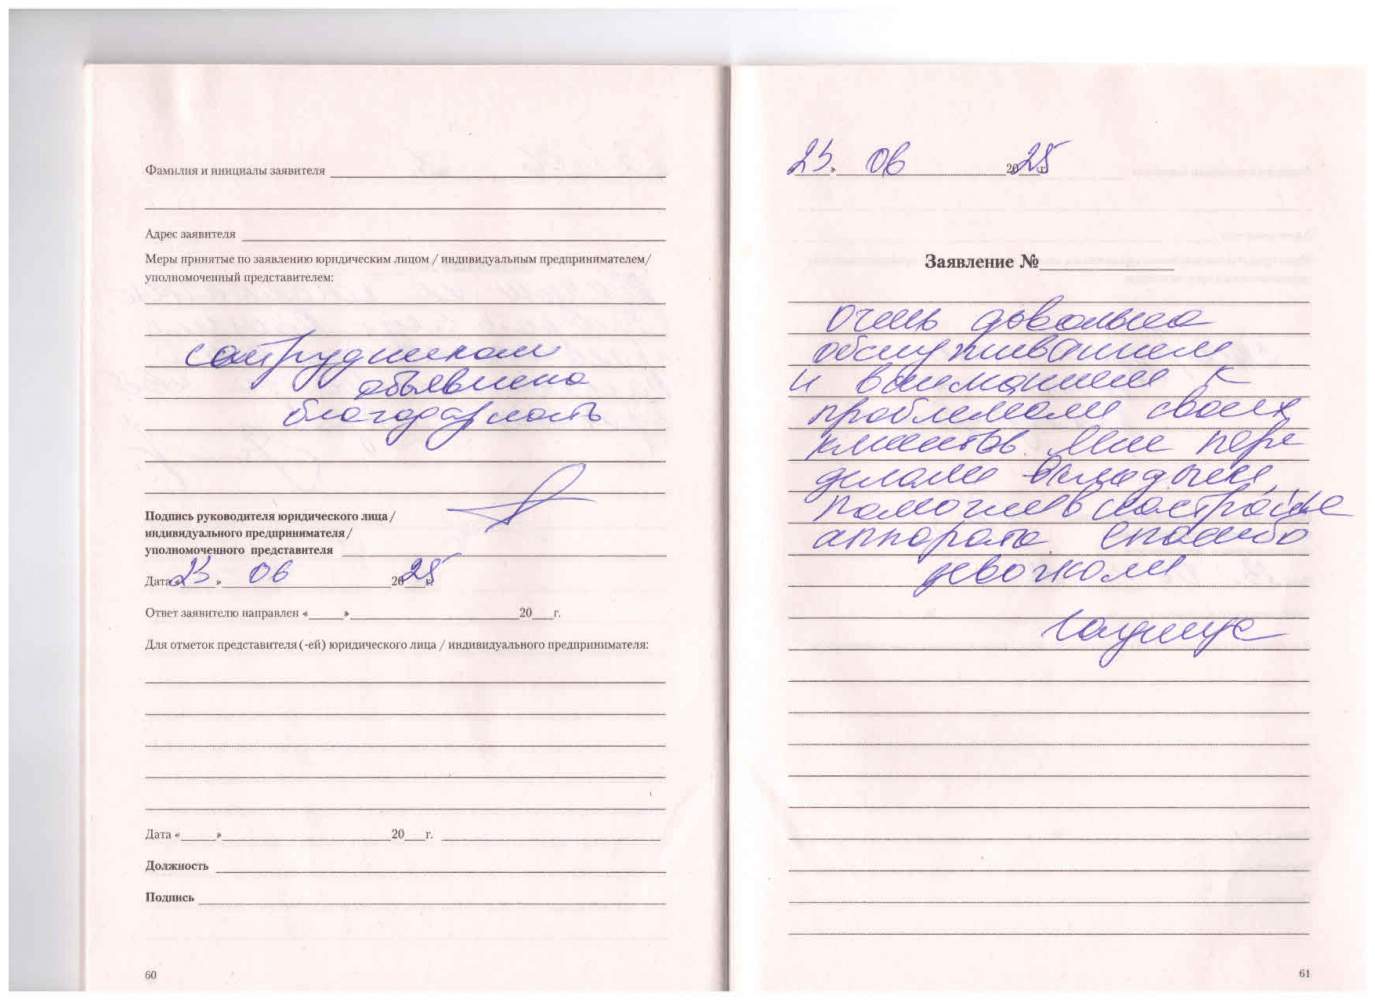 Фамилия и инициалы заявителя
Адрес заявителя
Меры принятые по заявлению юридическим лицом / индивидуальным предпринимателем/
уполномоченный представителем:
сотрудникам
объявлена
благодарность
Подпись руководителя юридического лица /
индивидуального предпринимателя /
уполномоченного представителя
Дата « 23 » 06 2025 г.
Ответ заявителю направлен «____»____ 20__г.
Для отметок представителя (-ей) юридического лица / индивидуального предпринимателя:
Дата «____»____ 20__г.
Должность
Подпись
60
23 » 06 2025 г.
Заявление №
Очень довольна
обслуживанием
и вниманием к
проблемам своих
клиентов. Мне пере
делали вкладыши,
помогли в настройке
аппарата. Спасибо
девочкам
61